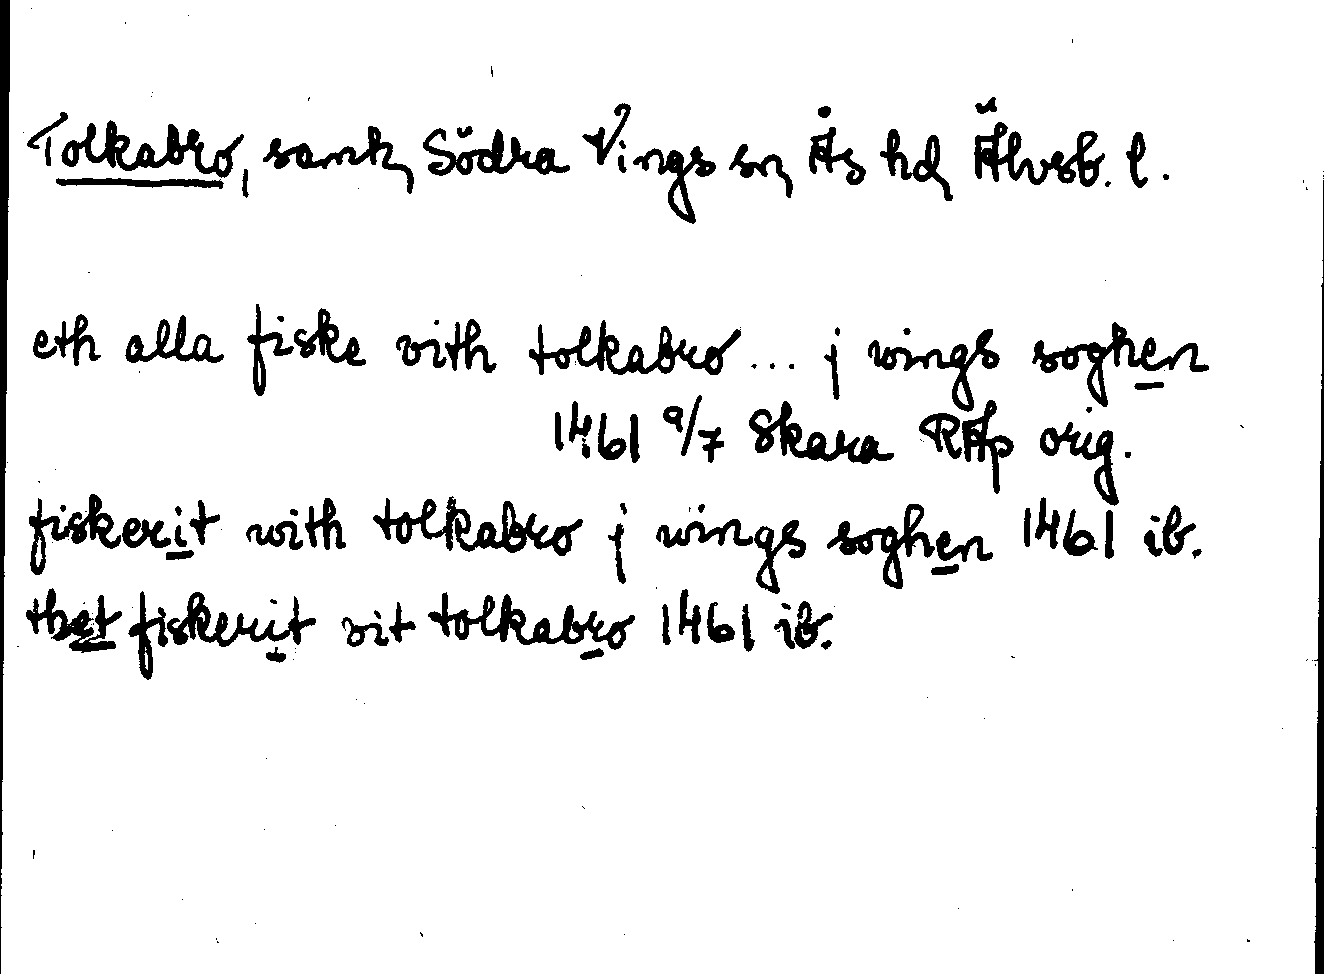 Tolkabro, saml, Södra Vings sn, Ås hd, Älvsb. l.
eth alla fiske vith tolkabro ... j wings soghen
1461 9/7 Skara RAp orig.
fiskerit with tolkabro j wings soghen 1461 ib.
thet fiskerit vit tolkabro 1461 ib.